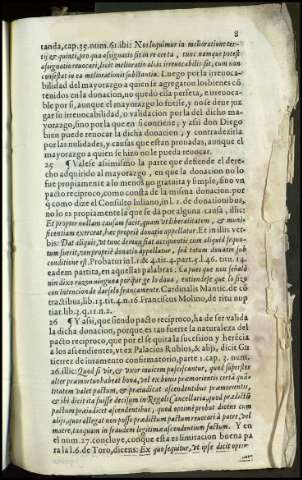 8
tanda, cap. 35. num. 61. ibi: Nos loquimur in melioratione ter-
tij & quinti, pro qua assignatis sit in re certa, tunc namque potest
assignatio reuocari, licèt melioratio alias irreuocabilis sit, cum non
consistat in ea meliorationis substantia. Luego por la irreuoca-
bilidad del mayorazgo a quien se agregaron los bienes cõ
tenidos en la donacion, no quedo ella perfeta, e irreuoca-
ble por si, aunque el mayorazgo lo fuesse, y no se deue juz
gar su irreuocabilidad, o validacion por la del dicho ma-
yorazgo, sino por la que en si contiene; y assi don Diego
bien puede reuocar la dicha donacion, y contradezirla
por las nulidades, y causas que estan prouadas, aunque el
mayorazgo a quien se hizo no le pueda reuocar.
25 ¶ Valese assimismo la parte que defiende el dere-
cho adquirido al mayorazgo, en que la donacion no lo
fue propiamente a lo menos pura gratuita y simple, sino vn
pacto reciproco, como consta de la misma donacion. por
q̃ como dize el Consulto Iuliano, in l. 1. de donationibus,
no lo es propiamente la que se da por alguna causa, ibi:
Et propter nullam causam facit, quàm vt liberalitatem, & muni-
ficentiam exerceat, hæc propriè donatio appellatur. Et in illis ver-
bis: Dat aliquis, vt tunc demum fiat accipientis cum aliquid sequu-
tum fuerit, non propriè donatio appellatur, sed totum donatio sub
conditione est. Probatur in l. 1. & 4. tit. 4. part. 5. l. 46. titu. 14.
eadem partita, en aquellas palabras: Ca pues que nos señala
nin dixo razon ninguna porque ge lo daua, entiendese que lo fizo
con intencion de darselo francamente. Cardinalis Mantic. de cõ
tractibus, lib. 13. tit. 4. n. 16. Franciscus Molino, de ritu nup
tiar. lib. 3. q. 11. n. 2.
26 ¶ Y assi, que siendo pacto reciproco, ha de ser valida
la dicha donacion, porque es tan fuerte la naturaleza del
pacto reciproco, que por el se quita la sucession y herecia
a los ascendientes, vt ex Palacios Rubios, & alijs, dicit Gu
tierrez de iuramento confirmatorio, parte 1. cap. 2. num.
26. illic: Quod si vir, & vxor inuicem paciscantur, quod superstes
alter præmortuo habeat bona, vel ex bonis præmorientis certã quan
titatem valet pactum, & præiudicat ascendentibus præmorientis,
& ibi dicit ita fuisse decisum in Regali Cancellaria, quod prædictũ
pactum præiudicet ascendentibus, quod optimè probat dicens cum
alijs, quos allegat non posse prædictum pactum reuocari à patre, vel
matre, tanquam in fraudem legitimæ ascendentium factum. Y en
el num. 27. concluye, conque està es limitacion buena pa
ra la l. 6. de Toro, dicens: Ex quo sequitur, vt ipse dicit opti-